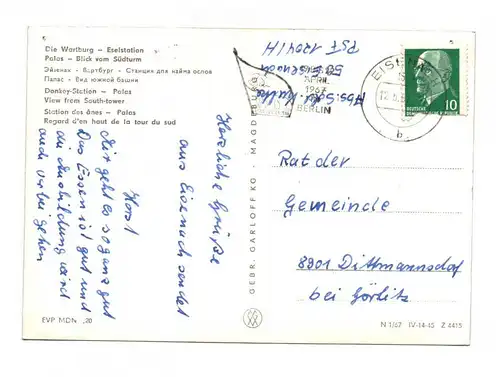 Die Wartburg – Eselstation
Palas – Blick vom Südturm
Эйзенах – Вартбург – Станция для найма ослов
Палас – Вид южной башни
Donkey-Station – Palas
View from South-tower
Station des ânes – Palas
Regard d'en haut de la tour du sud
Herzliche Grüße
aus Eisenach sendet
Horst
Mir geht es so ganz gut
Das Essen ist gut und
die Ausbildung wird
auch vorbei gehen
EVP MDN -,20
GEBR. GARLOFF KG · MAGDEBURG
Eisenach
PSF
APRIL
1967
BERLIN
EISENACH
b
10
Rat der
Gemeinde
8901 Dittmannsdorf
bei Görlitz
N 1/67 IV-14-45 Z 4415